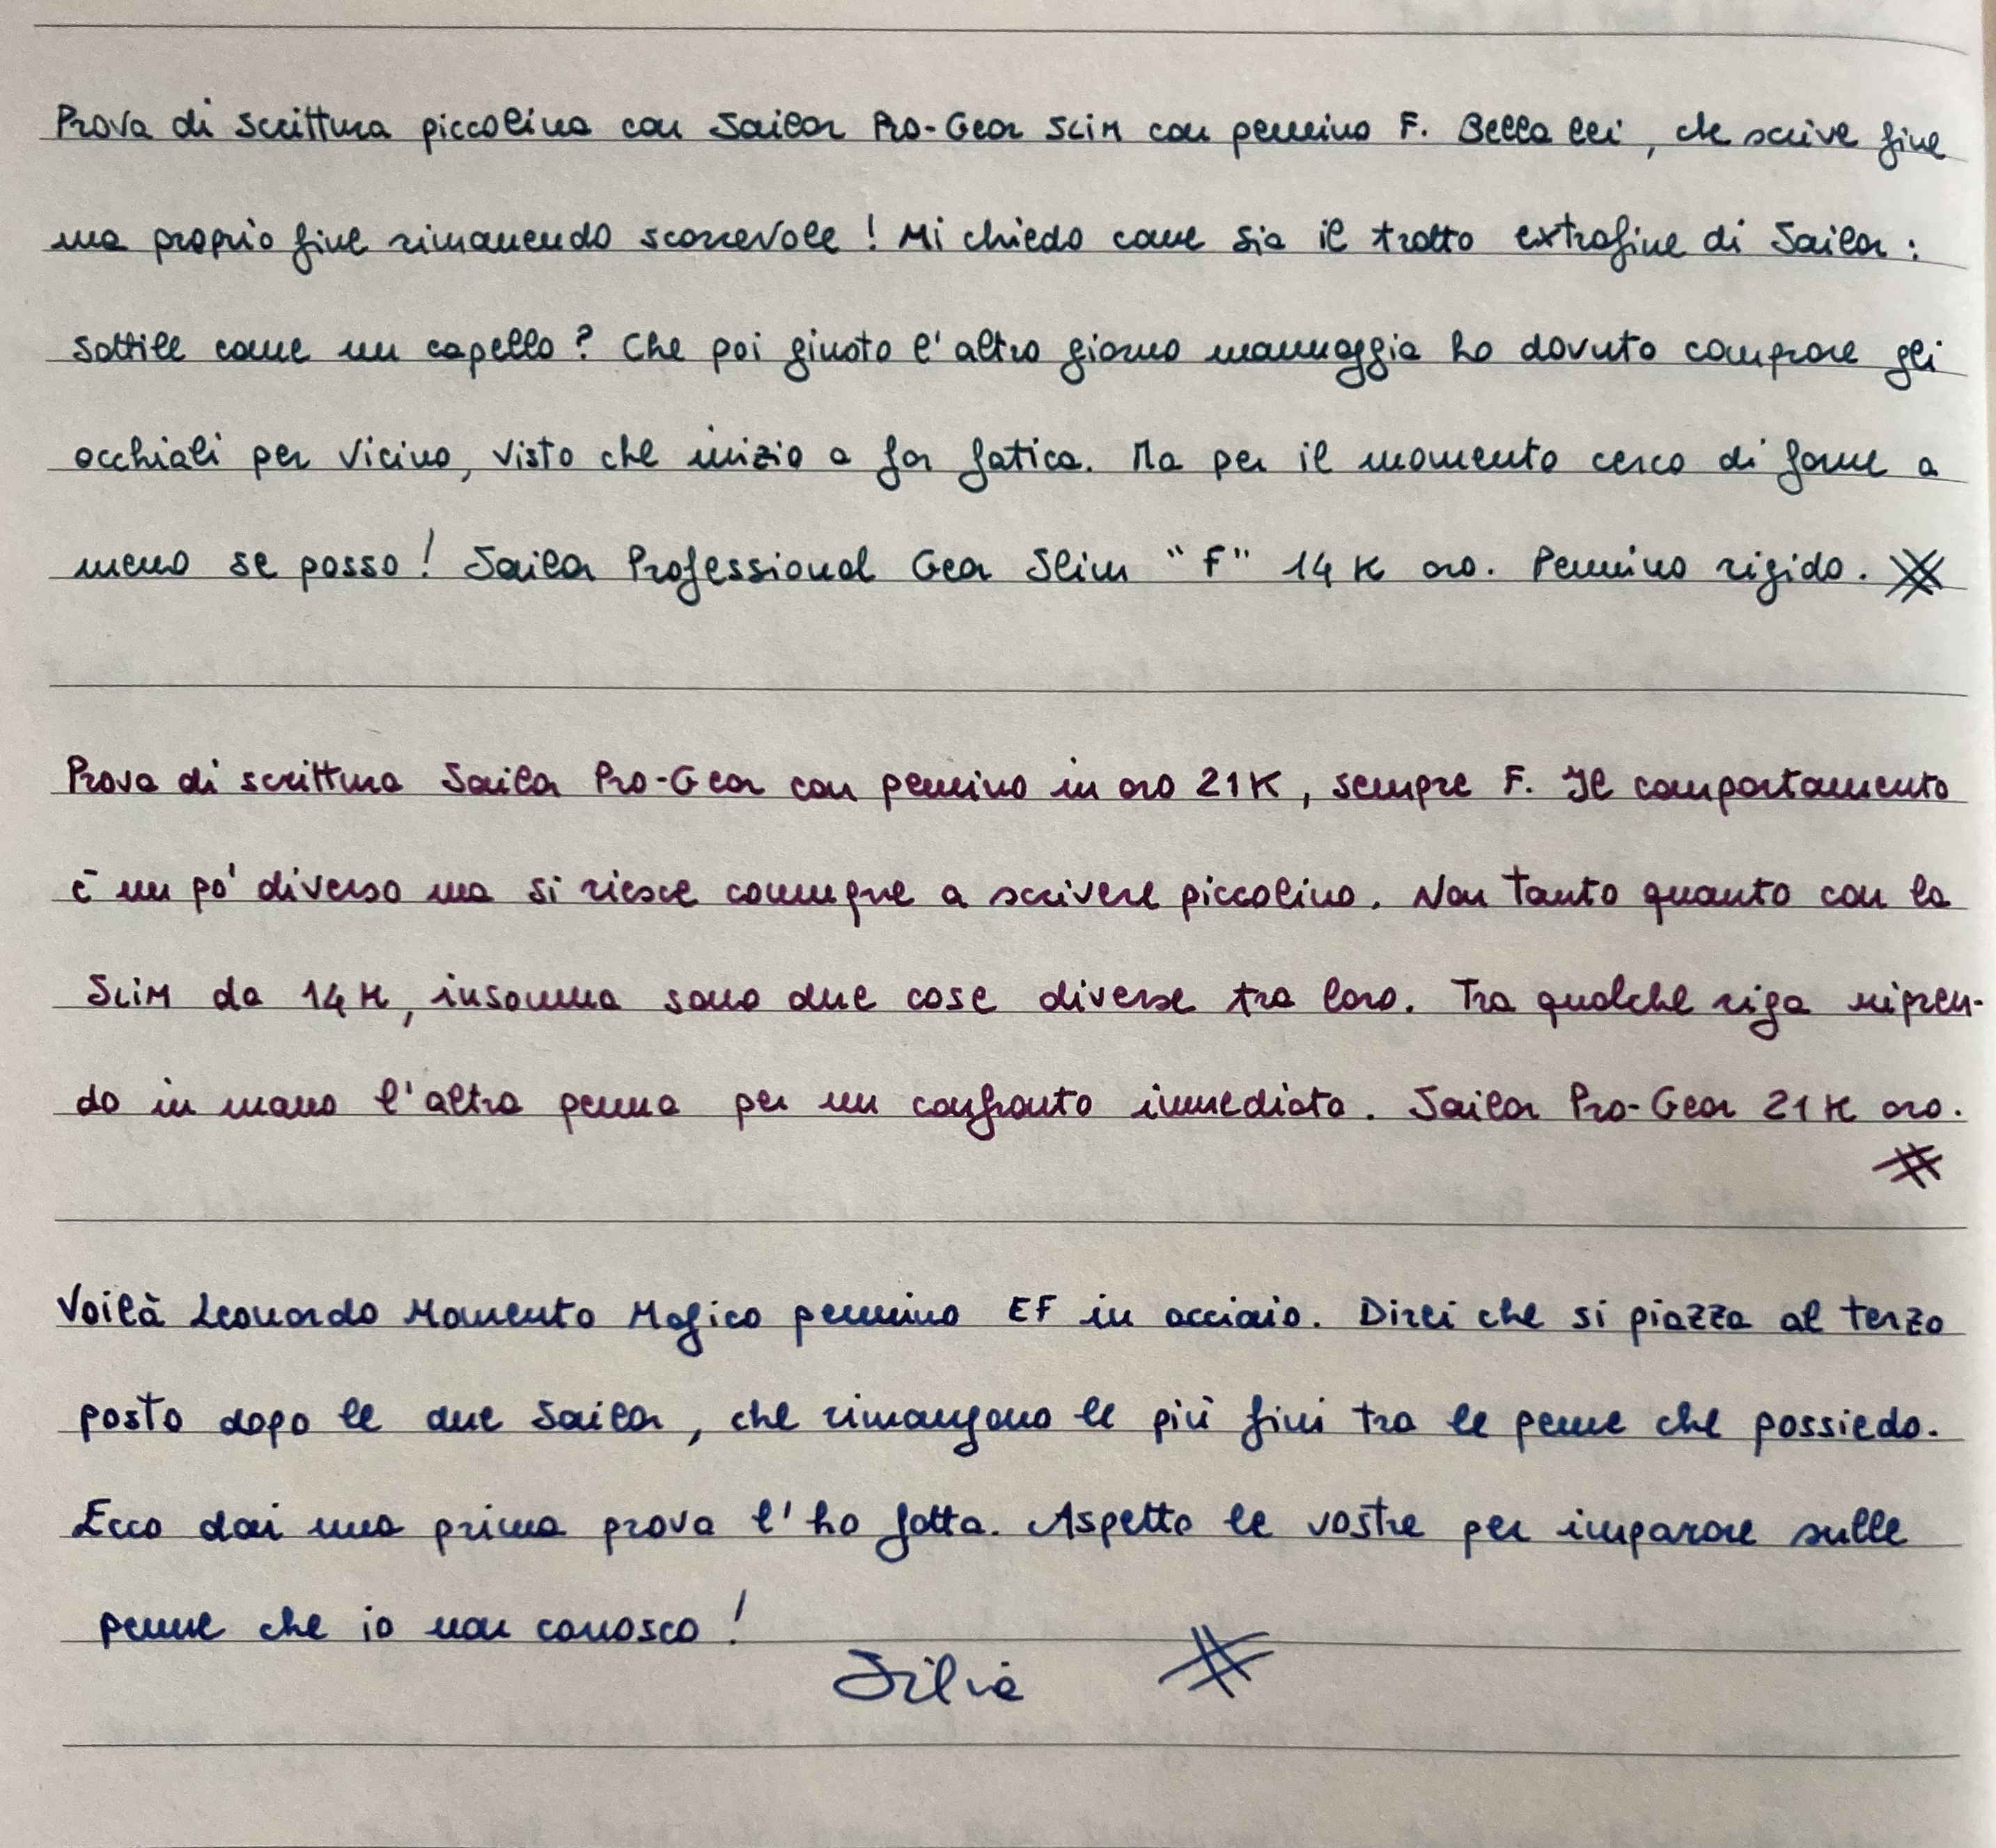 Prova di scrittura piccolina con Sailor Pro-Gear Slim con pennino F. Bella lei, che scrive fine
ma proprio fine rimanendo scorrevole! Mi chiedo come sia il tratto extrafine di Sailor:
sottile come un capello? Che poi giusto l'altro giorno mannaggia ho dovuto comprare gli
occhiali per vicino, visto che inizio a far fatica. Ma per il momento cerco di farne a
meno se posso! Sailor Professional Gear Slim "F" 14K oro. Pennino rigido.
Prova di scrittura Sailor Pro-Gear con pennino in oro 21K, sempre F. Il comportamento
è un po' diverso ma si riesce comunque a scrivere piccolino. Non tanto quanto con la
Slim da 14K, insomma sono due cose diverse tra loro. Tra qualche riga ripren-
do in mano l'altra penna per un confronto immediato. Sailor Pro-Gear 21K oro.
Voilà Leonardo Momento Magico pennino EF in acciaio. Direi che si piazza al terzo
posto dopo le due Sailor, che rimangono le più fini tra le penne che possiedo.
Ecco dai una prima prova l'ho fatta. Aspetto le vostre per imparare sulle
penne che io non conosco!
Silvia